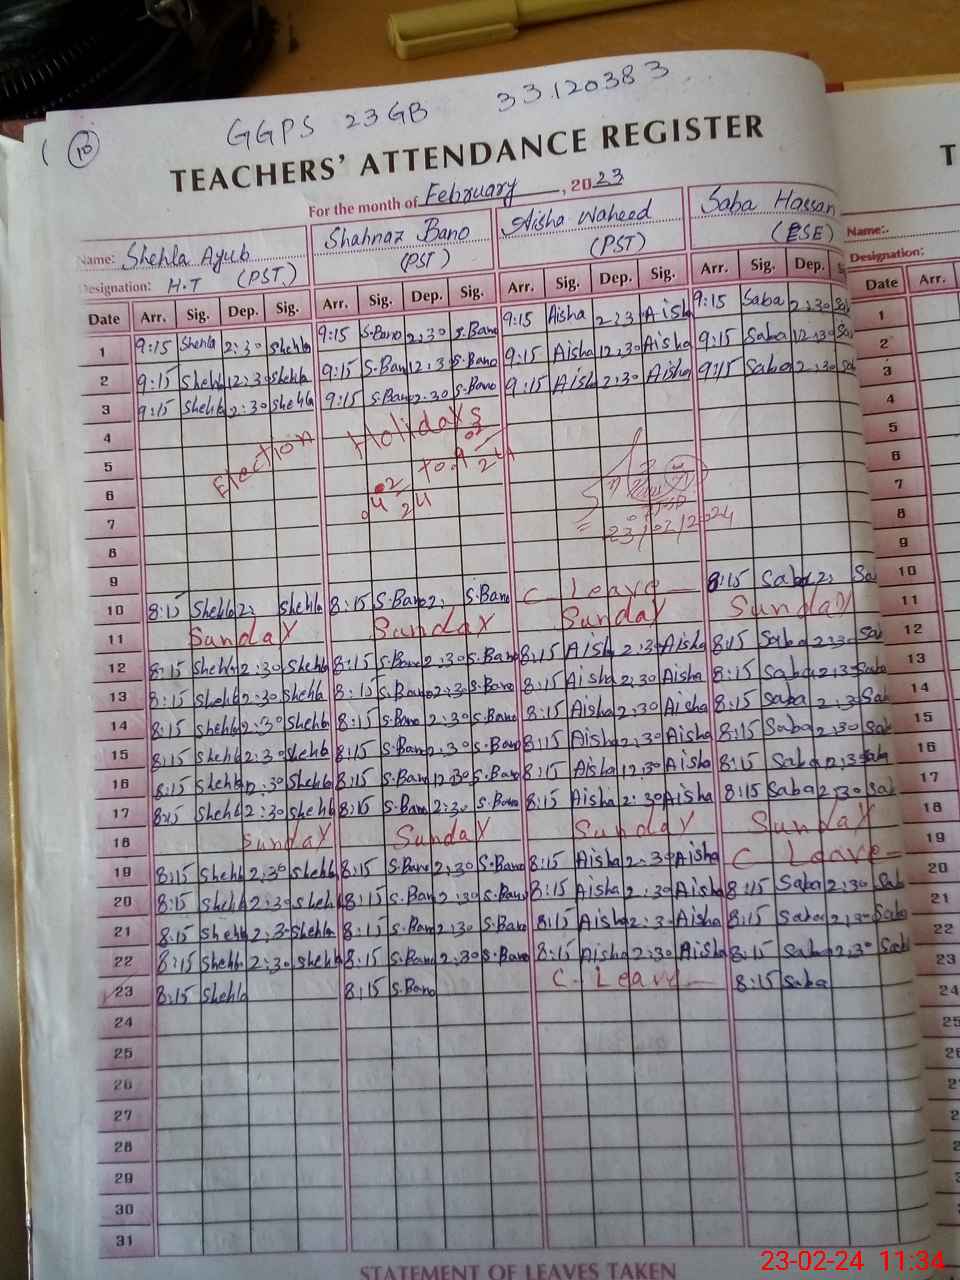 GGPS 23GB 33120383
10
TEACHERS' ATTENDANCE REGISTER
For the month of February, 2023
Name: Shehla Ayub Shahnaz Bano Aisha Waheed Saba Hassan Name:
Designation: H.T (PST) (PST) (PST) (ESE) Designation:
Date Arr. Sig. Dep. Sig. Arr. Sig. Dep. Sig. Arr. Sig. Dep. Sig. Arr. Sig. Dep. Date Arr.
1 9:15 Shehla 2:30 Shehla 9:15 S.Bano 2:30 S.Bano 9:15 Aisha 2:3 Aish 9:15 Saba 2:30 Sab 1
2 9:15 Shehl 12:30 Shehla 9:15 S.Ban 12:3 S.Bano 9:15 Aisha 12:30 Aisha 9:15 Saba 12:30 Sa 2
3 9:15 Shehl 2:30 Shehla 9:15 S.Bano 2:30 S.Bano 9:15 Aish 2:30 Aisha 9:15 Saba 2:30 Sab 3
4 Election Holidays 4
5 5
6 6
7 23/02/2024 7
8 8
9 9
10 8:15 Shehl 2: Shehla 8:15 S.Bano 2: S.Bano C. Leave 8:15 Saba 2: Sa 10
11 Sunday Sunday Sunday Sunday 11
12 8:15 Shehl 2:30 Shehl 8:15 S.Bano 2:30 S.Ban 8:15 Aish 2:3 Aisha 8:15 Saba 2:30 Sai 12
13 8:15 Shehl 2:30 Shehl 8:15 S.Bano 2:30 S.Bano 8:15 Aisha 2:30 Aisha 8:15 Saba 2:30 Saba 13
14 8:15 Shehl 2:30 Shehl 8:15 S.Bano 2:30 S.Bano 8:15 Aisha 2:30 Aisha 8:15 Saba 2:3 Sab 14
15 8:15 Shehl 2:30 Shehla 8:15 S.Ban 2:30 S.Bano 8:15 Aisha 2:30 Aisha 8:15 Saba 2:30 Sab 15
16 8:15 Shehl 12:30 Shehla 8:15 S.Ban 12:30 S.Bano 8:15 Aisha 12:30 Aisha 8:15 Saba 12:3 Saba 16
17 8:15 Shehl 2:30 Shehl 8:15 S.Ban 2:30 S.Bano 8:15 Aisha 2:30 Aisha 8:15 Saba 2:30 Sab 17
18 Sunday Sunday Sunday Sunday 18
19 8:15 Shehl 2:30 Shehl 8:15 S.Bano 2:30 S.Bano 8:15 Aisha 2:3 Aisha C. Leave 19
20 8:15 Shehl 2:30 Shehl 8:15 S.Ban 2:30 S.Bano 8:15 Aisha 2:30 Aisha 8:15 Saba 2:30 Sab 20
21 8:15 Shehl 2:3 Shehla 8:15 S.Ban 2:30 S.Bano 8:15 Aisha 2:3 Aisha 8:15 Saba 2:30 Saba 21
22 8:15 Shehl 2:30 Shehl 8:15 S.Ban 2:30 S.Bano 8:15 Aisha 2:30 Aisha 8:15 Saba 2:30 Sab 22
23 8:15 Shehla 8:15 S.Bano C. Leave 8:15 Saba 23
24 24
25 25
26 26
27
28
29
30
31
STATEMENT OF LEAVES TAKEN
23-02-24 11:34